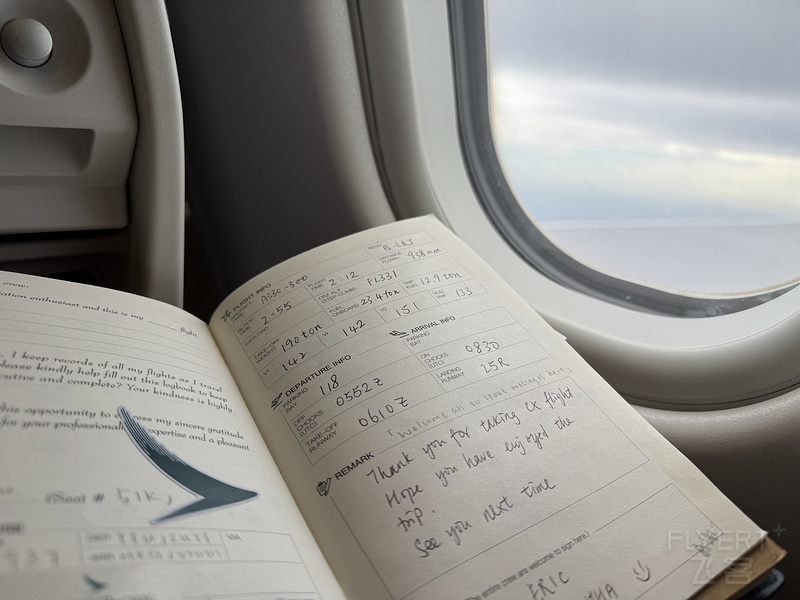 crew:
ation enthusiast and this is my
flight
I keep records of all my flights as I travel
please kindly help fill out this logbook to keep
utive and complete? Your kindness is highly
his opportunity to express my sincere gratitude
for your professional expertise and a pleasant
(Seat # 51K)
FLIGHT INFO
A330-300
B-LBJ
BLOCK TIME 2:55
FLIGHT 2:12
DISTANCE FLOWN 938nm
PAYLOAD
(STEP CLIMB) FL331
TAKE-OFF WEIGHT 190 ton
FUEL ONBOARD 23.4 ton
FUEL 12.9 ton
V1 142
VR 142
V2 151
133
DEPARTURE INFO
ARRIVAL INFO
PARKING BAY 118
PARKING BAY
OFF CHOCKS (UTC) 0552Z
ON CHOCKS (UTC) 0830
TAKE-OFF RUNWAY 0610Z
LANDING RUNWAY 25R
REMARK
(Welcome all to leave messages here)
Thank you for taking CX flight
Hope you have enjoyed the
trip.
See you next time
The entire crew are welcome to sign here!
ERIC
FLYERT+